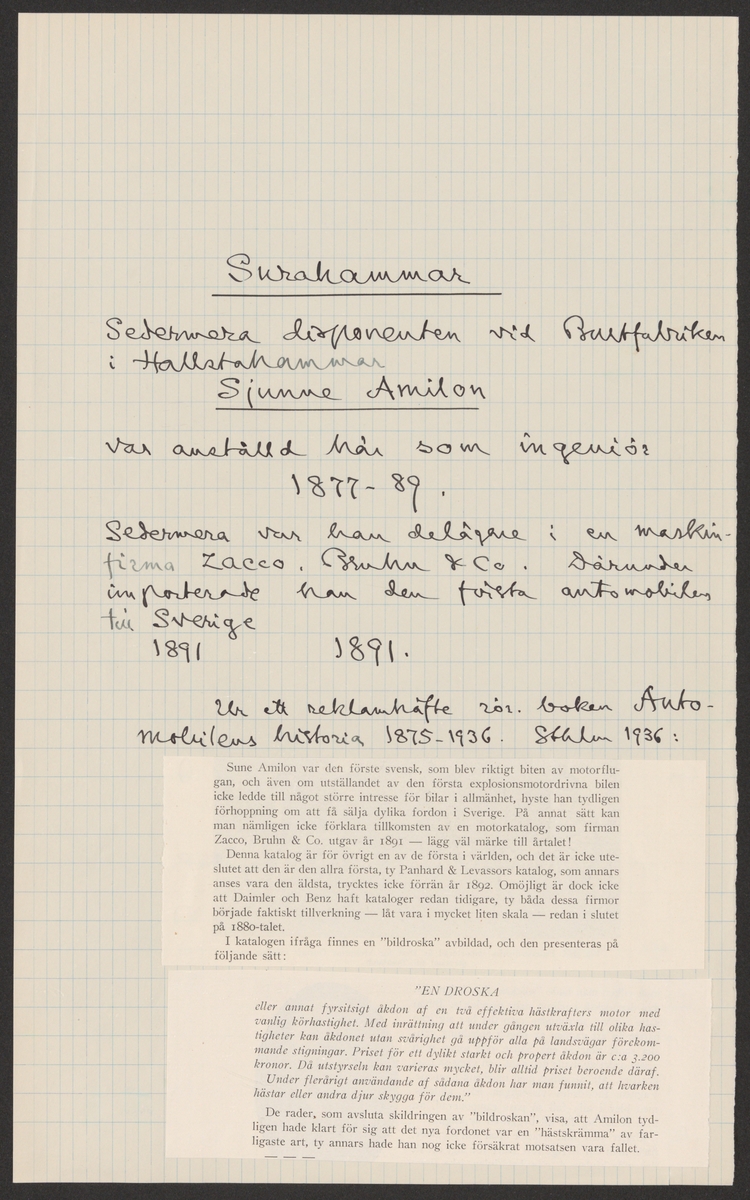 Surahammar
Sedermera disponenten vid Bultfabriken
i Hallstahammar
Sjunne Amilon
var anställd här som ingeniör
1877-89.
Sedermera var han delägare i en maskin-
firma Zacco, Bruhn & Co. Därunder
importerade han den första automobilen
till Sverige
1891 1891.
Ur ett reklamhäfte rör. boken Auto-
mobilens historia 1875-1936. Sthlm 1936:
Sune Amilon var den förste svensk, som blev riktigt biten av motorflu-
gan, och även om utställandet av den första explosionsmotordrivna bilen
icke ledde till något större intresse för bilar i allmänhet, hyste han tydligen
förhoppning om att få sälja dylika fordon i Sverige. På annat sätt kan
man nämligen icke förklara tillkomsten av en motorkatalog, som firman
Zacco, Bruhn & Co. utgav år 1891 — lägg väl märke till årtalet!
Denna katalog är för övrigt en av de första i världen, och det är icke ute-
slutet att den är den allra första, ty Panhard & Levassors katalog, som annars
anses vara den äldsta, trycktes icke förrän år 1892. Omöjligt är dock icke
att Daimler och Benz haft kataloger redan tidigare, ty båda dessa firmor
började faktiskt tillverkning — låt vara i mycket liten skala — redan i slutet
på 1880-talet.
I katalogen ifråga finnes en ”bildroska” avbildad, och den presenteras på
följande sätt:
”EN DROSKA
eller annat fyrsitsigt åkdon af en två effektiva hästkrafters motor med
vanlig körhastighet. Med inrättning att under gången utväxla till olika has-
tigheter kan åkdonet utan svårighet gå uppför alla på landsvägar förekom-
mande stigningar. Priset för ett dylikt starkt och propert åkdon är c:a 3.200
kronor. Då utstyrseln kan varieras mycket, blir alltid priset beroende däraf.
Under flerårigt användande af sådana åkdon har man funnit, att hvarken
hästar eller andra djur skygga för dem.”
De rader, som avsluta skildringen av ”bildroskan”, visa, att Amilon tyd-
ligen hade klart för sig att det nya fordonet var en ”hästskrämma” av far-
ligaste art, ty annars hade han nog icke försäkrat motsatsen vara fallet.
— — —